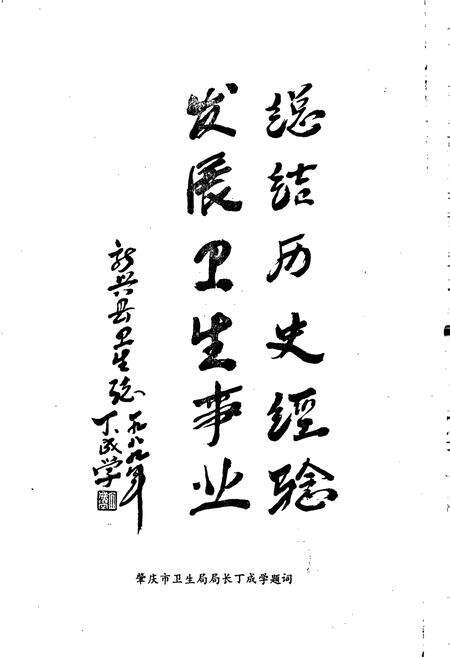 總结历史经验
发展卫生事业
新兴县卫生志
一九八九年
丁成学
肇庆市卫生局局长丁成学题词